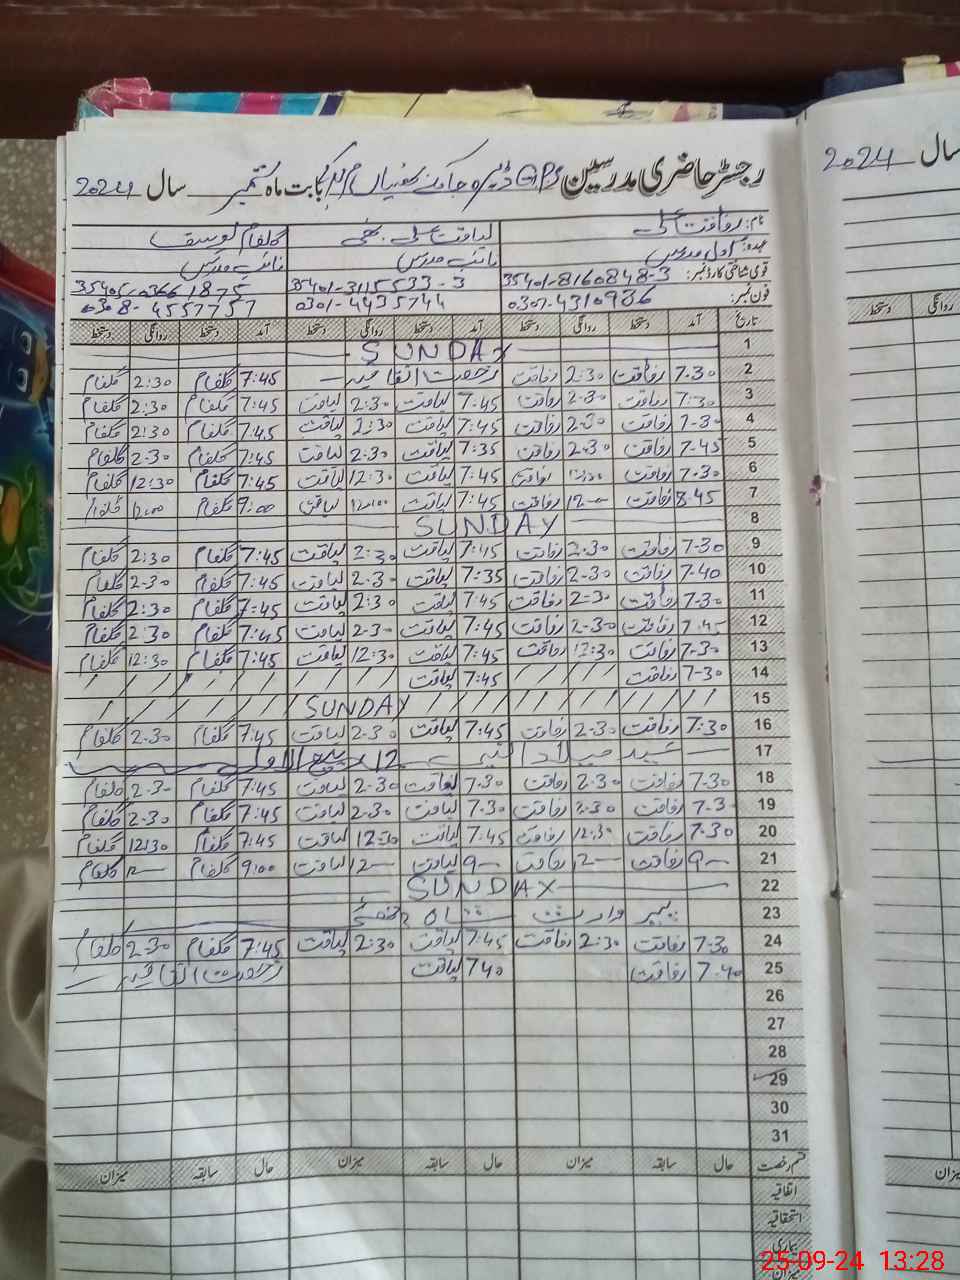 رجسٹر حاضری مدرسین GPS بابت ماہ ستمبر سال 2024
سال 2024
نام: رفاقت علی لیاقت علی بھٹی گلفام یوسف
عہدہ: اول مدرس نائب مدرس نائب مدرس
قومی شناختی کارڈ نمبر: 35401-8160848-3 35401-3115533-3 35401-03661875
فون نمبر: 0307-4310936 0301-4435744 0308-4557757
تاریخ آمد دستخط روانگی دستخط آمد دستخط روانگی دستخط آمد دستخط روانگی دستخط
روانگی دستخط
1 SUNDAY
2 7-30 رفاقت 2:30 رفاقت رخصت اتفاقیہ 7:45 گلفام 2:30 گلفام
3 7:30 رفاقت 2-30 رفاقت 7:45 لیاقت 2:30 لیاقت 7:45 گلفام 2:30 گلفام
4 7-30 رفاقت 2-30 رفاقت 7:45 لیاقت 2:30 لیاقت 7:45 گلفام 2:30 گلفام
5 7-45 رفاقت 2-30 رفاقت 7:35 لیاقت 2-30 لیاقت 7:45 گلفام 2-30 گلفام
6 7-30 رفاقت رفاقت 7:45 لیاقت 12:30 لیاقت 7:45 گلفام 12:30 گلفام
7 8:45 رفاقت 12- رفاقت 7:45 لیاقت 12:00 لیاقت 9:00 گلفام 12:00
8 SUNDAY
9 7-30 رفاقت 2-30 رفاقت 7:45 لیاقت 2:30 لیاقت 7:45 گلفام 2:30 گلفام
10 7-40 رفاقت 2-30 رفاقت 7:35 لیاقت 2-30 لیاقت 7:45 گلفام 2-30 گلفام
11 7-30 رفاقت 2-30 رفاقت 7:45 لیاقت 2:30 لیاقت 7:45 گلفام 2:30 گلفام
12 7-45 رفاقت 2-30 رفاقت 7:45 لیاقت 2-30 لیاقت 7:45 گلفام 2:30 گلفام
13 7-30 رفاقت 12:30 رفاقت 7:45 لیاقت 12:30 لیاقت 7:45 گلفام 12:30 گلفام
14 7-30 رفاقت / / 7:45 لیاقت / / / / / /
15 SUNDAY
16 7:30 رفاقت 2-30 رفاقت 7:45 لیاقت 2-30 لیاقت 7:45 گلفام 2-30 گلفام
17 عید میلادالنبی 12 ربیع الاول
18 7-30 رفاقت 2-30 رفاقت 7-30 لیاقت 2-30 لیاقت 7:45 گلفام 2-30 گلفام
19 7-30 رفاقت 2-30 رفاقت 7-30 لیاقت 2-30 لیاقت 7:45 گلفام 2-30 گلفام
20 7-30 رفاقت 12:30 رفاقت 7:45 لیاقت 12:30 لیاقت 7:45 گلفام 12:30 گلفام
21 9- رفاقت 12- رفاقت 9- لیاقت 12- لیاقت 9:00 گلفام 12- گلفام
22 SUNDAY
23 پیر وارث شاہ چھٹی
24 7-30 رفاقت 2:30 رفاقت 7:45 لیاقت 2:30 لیاقت 7:45 گلفام 2-30 گلفام
25 7-40 رفاقت 7 40 لیاقت رخصت اتفاقیہ
26
27
28
29
30
31
قسم رخصت حال سابقہ میزان حال سابقہ میزان حال سابقہ میزان
اتفاقیہ
استحقاقیہ
بیماری
میزان
25-09-24 13:28